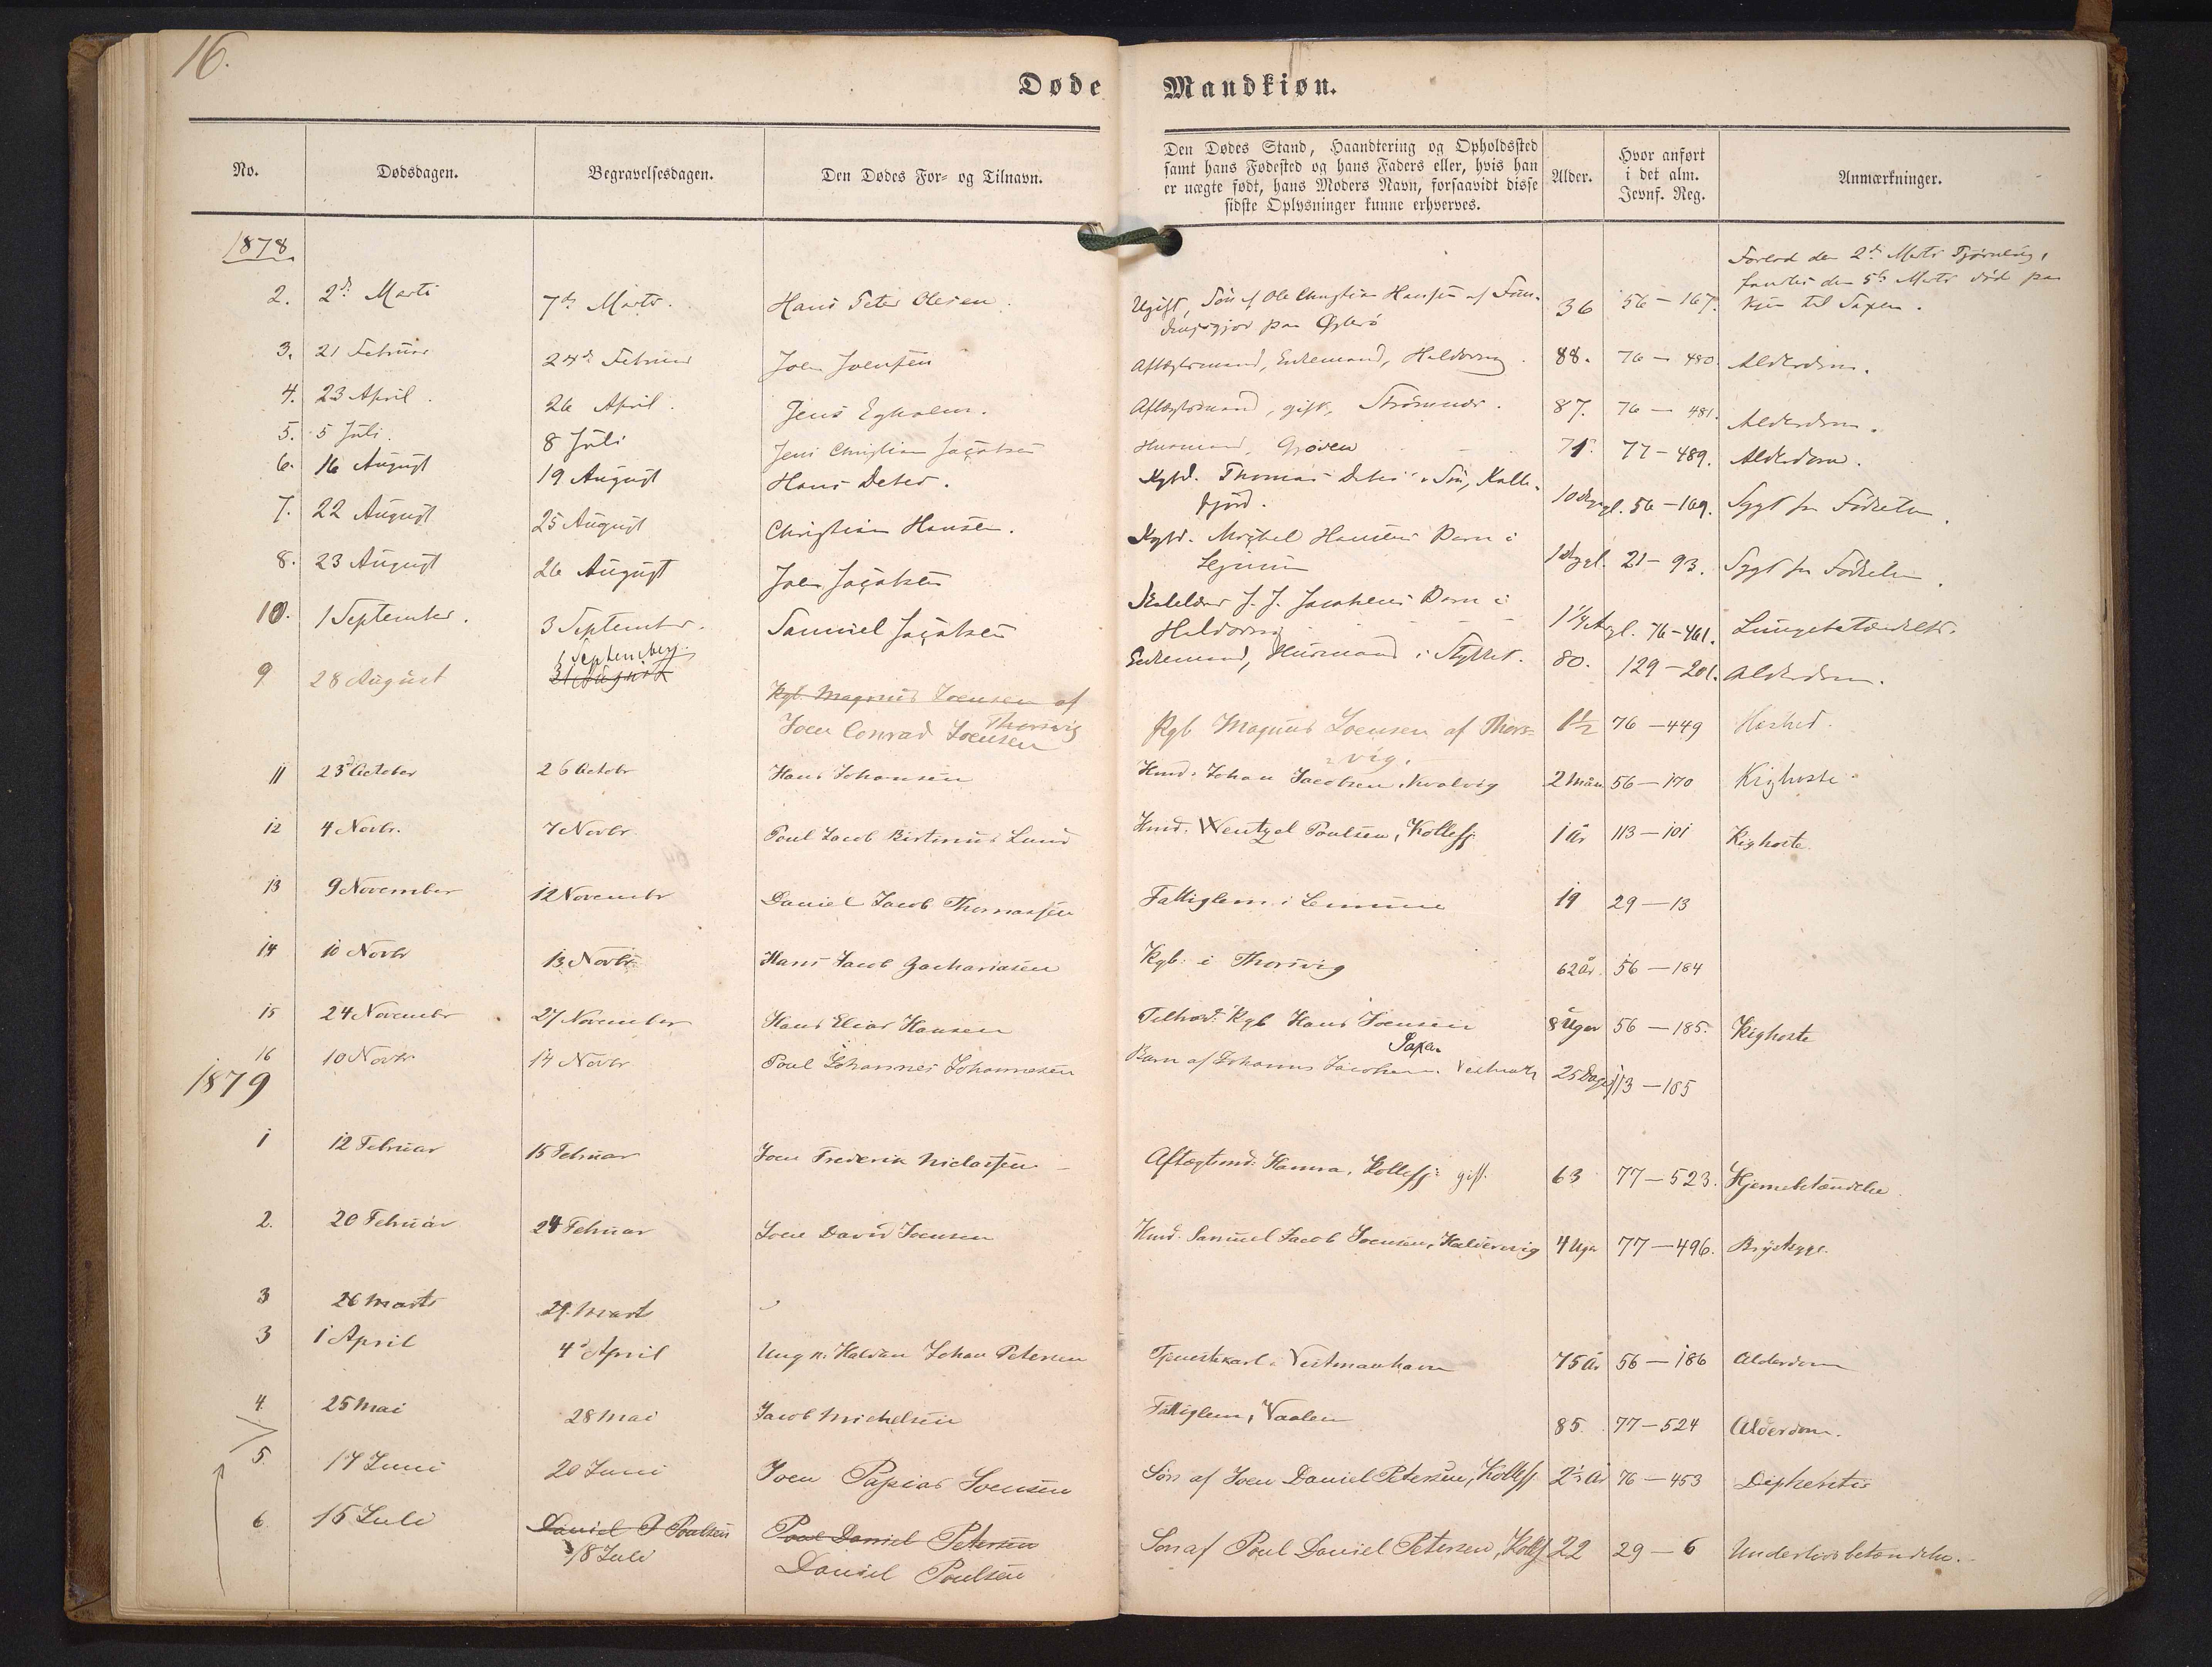 16.
Døde Mandkiøn.
No.
Dødsdagen.
Begravelsesdagen.
Den Dødes For- og Tilnavn.
Den Dødes Stand, Haandtering og Opholdssted
samt hans Fødested og hans Faders eller, hvis han
er uægte født, hans Moders Navn, forsaavidt disse
sidste Oplysninger kunne erhverves.
Alder.
Hvor anført
i det alm.
Jevnf. Reg.
Anmærkninger.
1878.
2. 2d Marts 7de Marts. Hans Peter Olesen. Ugift, Søn af Ole Christian Hansen af
paa Østerø 36 56 — 167.
Forlod den 2d Marts
fandtes den 5te Marts død paa
Veien til Saxen.
3. 21 Februar 24de Februar Joen Joensen Aftægtsmand, Enkemand, Haldorsvig. 88. 76 — 480 Alderdom.
4. 23 April. 26 April. Jens Egholm. Aftægtsmand, gift, Strømnæs. 87. 76 — 481. Alderdom.
5. 5 Juli. 8 Juli Jens Christian Jacobsen Husmand, 71. 77 — 489. Alderdom.
6. 16 August 19 August Hans Debes. Kgbd. Thomas Debes' Søn, Kolle-
fjord. 56 — 169. Sygt fra Fødselen.
7. 22 August 25 August Christian Hansen. Kgbd. Hansens Barn i
21 — 93. Sygt fra Fødselen.
8. 23 August 26 August Joen Jacobsen J. J. Jacobsens Barn i
Haldorsvig 76 — 461. Lungebetændelse.
10. 1 September. 3 September. Samuel Jacobsen Enkemand, Husmand i Stykket. 80. 129 — 201. Alderdom.
9 28 August 1 September.
31 August
Kgb. Magnus Joensen af
Thorsvig
Joen Conrad Joensen Kgb Magnus Joensen af Thors-
vig. 1½ 76 — 449
11 23d October 26 Octobr Hans Johansen Hmd. Johan Jacobsen, Kvalvig 2 Mån. 56 — 170 Kighoste
12 4 Novbr. 7 Novbr Poul Jacob Lund Hmd. Wentzel Poulsen, Kollefj. 1 År 113 — 101 Kighoste.
13 9 November 12 Novembr Daniel Jacob Thomassen Fattiglem i 19 29 — 13
14 10 Novbr 13 Novbr Hans Jacob Zachariasen Kgb. i Thorsvig 62 år. 56 — 184
15 24 Novembr 27 November Hans Elias Hansen Kgb Hans Joensen
Saxen 8 Uger 56 — 185. Kighoste
16 10 Novbr. 14 Novbr Poul Johannes Johannesen Barn af Johannes Jacobsen. 25 Dage 113 — 105
1879
1 12 Februar 15 Februar Joen Frederik Niclassen Aftægtsmd. Kollefj. gift. 63 77 — 523. Hjernebetændelse
2. 20 Februar 24 Februar Joen David Joensen Hmd. Samuel Jacob Joensen, Haldervig 4 Uger 77 — 496. Brystsyge.
3 26 Marts 29. Marts
3 1 April 4d April Ung k. Haldan Johan Petersen Tjenestekarl i Vestmanhavn 75 År 56 — 186 Alderdom
4. 25 Mai 28 Mai Jacob Michelsen Fattiglem, Vaalen 85. 77 — 524 Alderdom.
5. 17 Juni 20 Juni Joen Papias Joensen Søn af Joen Daniel Petersen, Kollefj. 2½ År 76 — 453 Dipheritis
6. 15 Juli Daniel P Poulsen
18 Juli
Poul Daniel Petersen
Daniel Poulsen Søn af Poul Daniel Petersen, Kollf 22 29 — 6 Underlivsbetændelse.